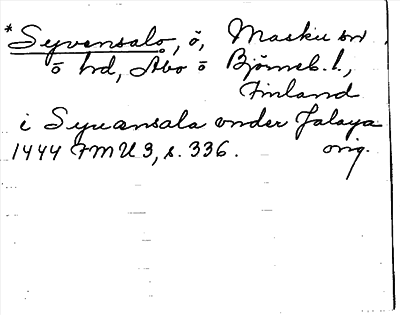 *Syvensalo, ö, Masku sn
ö hd, Åbo ö Björneb. l.,
Finland
i Syuænsala vnder Jalaya
1444 FMU 3, s. 336. orig.